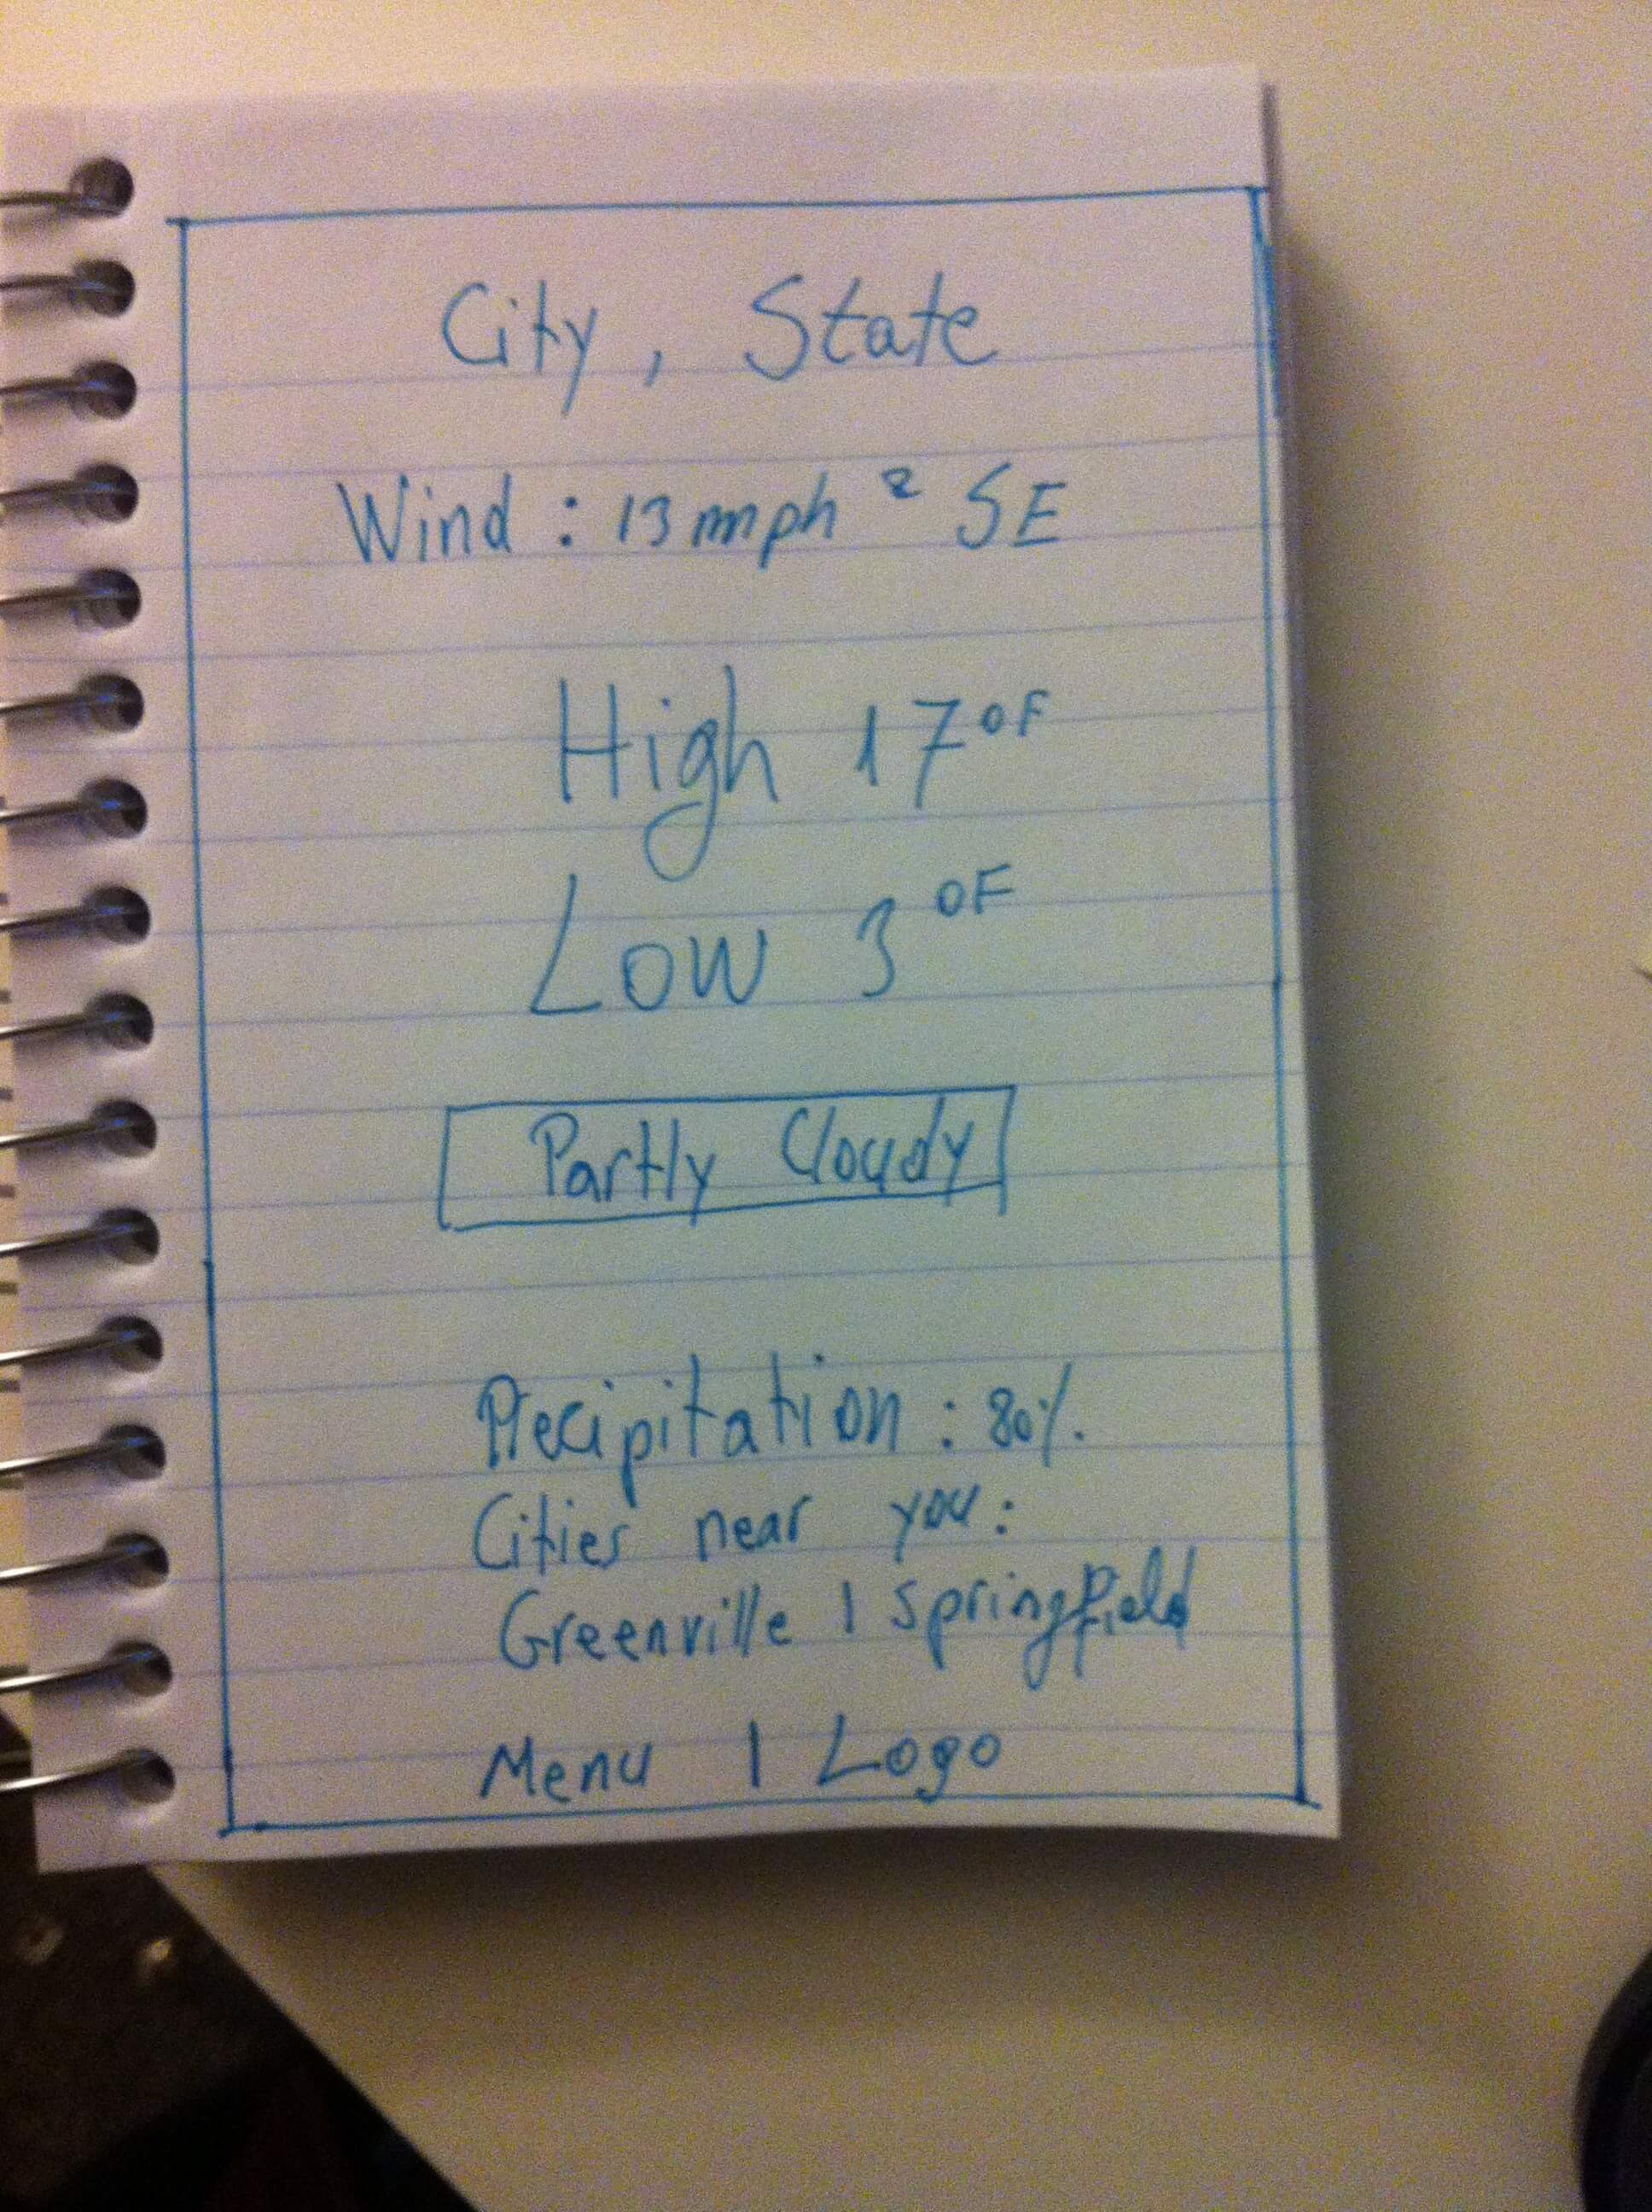 City, State
Wind: 13 mph ² SE
High 17°F
Low 3°F
Partly Cloudy
Precipitation: 80%
Cities near you:
Greenville | Springfield
Menu | Logo